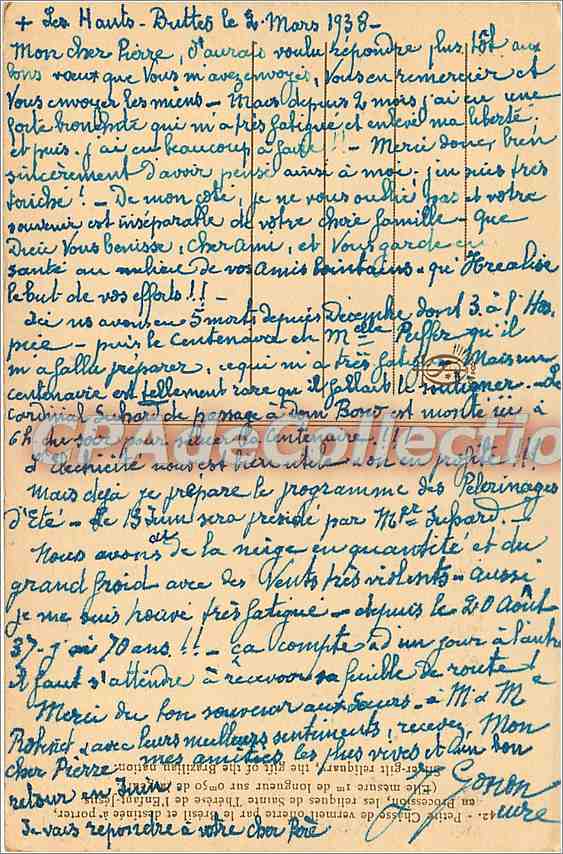 + Les Hauts-Buttes le 2 Mars 1938 -
Mon cher Pierre, J'aurais voulu répondre plus tôt aux
bons vœux que vous m'avez envoyés, Vous en remercier et
Vous envoyer les miens - Mais depuis 2 mois j'ai eu une
forte bronchite qui m'a très fatigué, et enlevé ma liberté.
et puis j'ai eu beaucoup à faire !! - Merci donc, bien
sincèrement d'avoir pensé ainsi à moi, j'en suis très
touché ! - De mon côté, je ne vous oublie pas et votre
souvenir est inséparable de votre chère famille - que
Dieu Vous bénisse, cher Ami, et Vous garde en
santé au milieu de vos Amis lointains - qu'Il réalise
le but de vos efforts !! -
Ici ns avons eu 5 morts depuis Décembre dont 3 à l'Hos-
pice - puis le Centenaire de Melle qu'il
m'a fallu préparer, ce qui m'a très fatigué - Mais un
centenaire est tellement rare qu'il fallait le souligner. - Le
Cardinal de passage à Dom Bosco est monté ici à
6h du soir pour saluer la Centenaire !!!
L'électricité nous est bien utile - on en profite !!!
Mais déjà je prépare le programme des Pèlerinages
d'Eté - Le 13 Juin sera présidé par Mgr
Nous avons eu de la neige en quantité et du
grand froid avec des Vents très violents - aussi
je me suis trouvé très fatigué - depuis le 20 Août
37 - j'ai 70 ans !! - ça compte - d'un jour à l'autre
il faut s'attendre à recevoir sa feuille de route !
Merci du bon souvenir aux Sœurs - à Mr & Me
avec leurs meilleurs sentiments, recevez, Mon
cher Pierre mes amitiés les plus vives et un bon
retour en Juin
J. Gonon
curé
Je vais répondre à votre cher Père
CPADeCollection
12. - Petite Châsse de vermeil offerte par le Brésil et destinée à porter,
en Procession, les reliques de Sainte Thérèse de l'Enfant-Jésus
(Elle mesure 1m de longueur sur 0m50 de
Silver-gilt reliquary, the gift of the Brazilian nation.